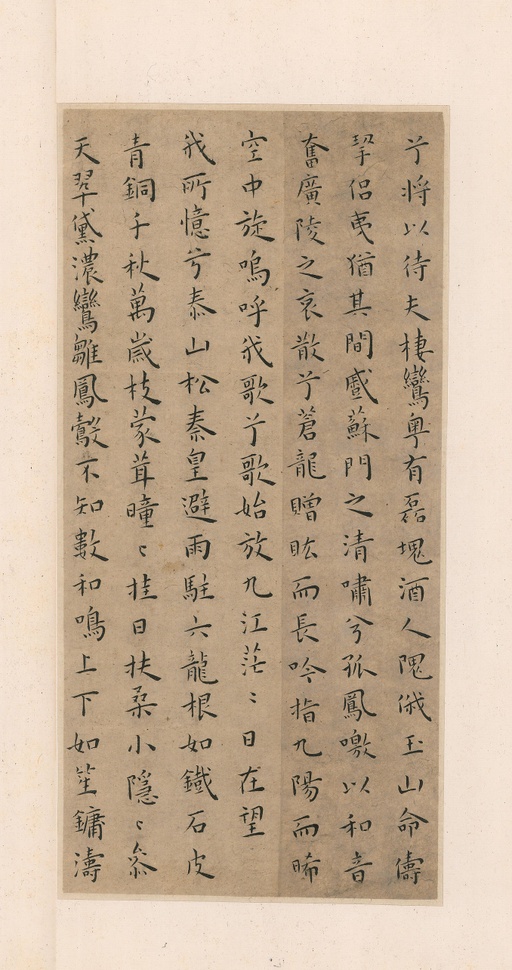 兮將以待夫棲鸞粵有磊塊酒人隗俄玉山命儔
挈侶夷猶其間感蘇門之清嘯兮孤鳳噭以和音
奮廣陵之哀散兮蒼龍贈眩而長吟指九陽而晞
空中旋嗚呼我歌兮歌始放九江茫〻日在望
我所憶兮泰山松秦皇避雨駐六龍根如鐵石皮
青銅千秋萬歲枝蒙茸曈〻挂日扶桑小隱〻參
天翠黛濃鸞雛鳳鷇不知數和鳴上下如笙鏞濤